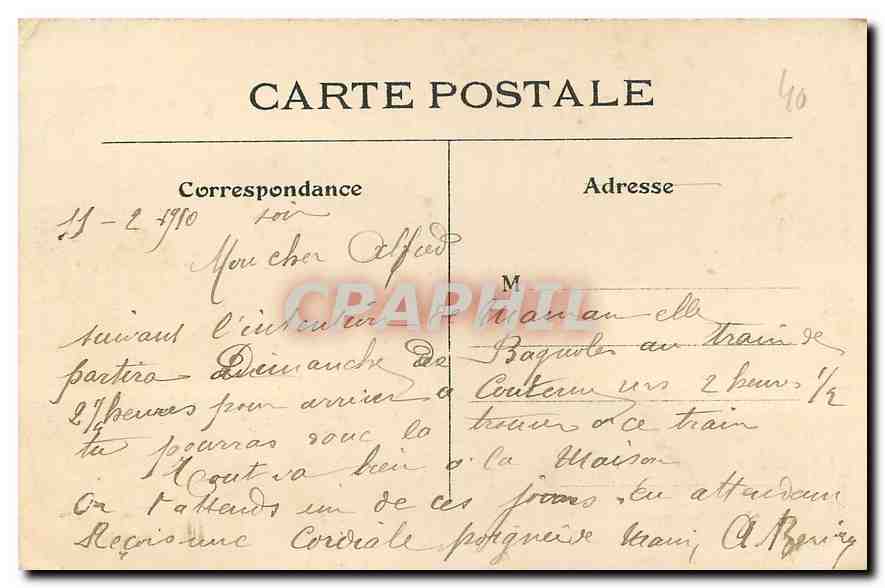 CARTE POSTALE
40
Correspondance
Adresse
11-2-1910 soir
Mon cher Alfred
M
CRAPHIL
suivant l'intention de Maman elle
partira Dimanche de Bagnoles au train de
2 heures pour arriver a Couterne vers 2 heures 1/2
tu pourras donc la trouver a ce train
Tout va bien a la Maison
On t'attends un de ces jours. En attendant
Reçois une Cordiale poignée de Main, A